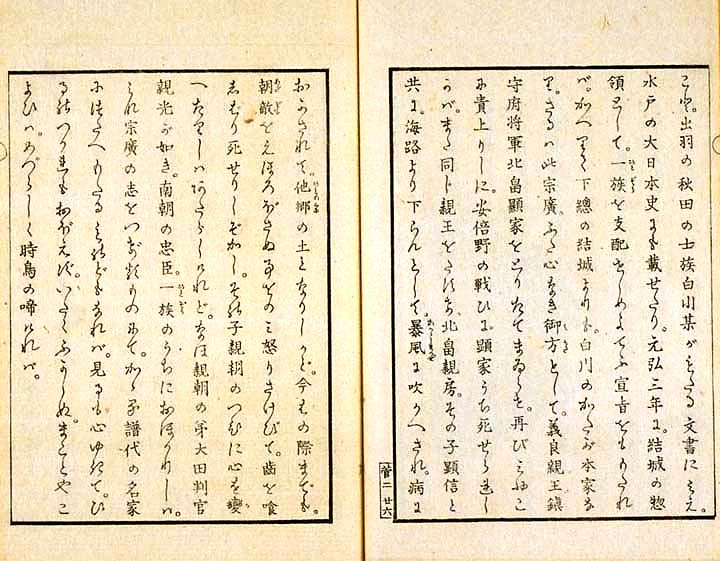 こと。出羽の秋田の士族白川某がもたる文書にみえ。
水戸の大日本史にも載せたり。元弘三年に。結城の惣
領として。一族を支配せしめよてふ宣旨をも
ば。かへりて下總の結城よりも。白川のかたぞ本家な
り。さるハ此宗廣。ふた心なき御方として。義良親王鎭
守府將軍北畠顯家をとりたてまゐらせ。再びみやこ
に責上りしに。安倍野の戰ひに。顯家うち死せられし
かバ。また同じ親王をたすけ。北畠親房。その子顯信と
共に。海路より下らんとして。暴風に吹かへされ。病に
菅二 廿六
おかされて。他郷の土となりしかど。今はの際までも。
朝敵をえほろぼさぬ事をのミ怒りさけびて。齒を喰
しばり死せりしぞかし。その子親朝のつひに心を變
へたりしハ。あたらしけれど。なほ親朝の弟大田判官
親光が如き。南朝の忠臣。一族のうちにおほかりしハ。
宗廣の志をつぎ ものにて。かゝる譜代の名家
につたへもたる どもなれバ。見るも心ゆきて。ひ
るのつかれもおぼえず。いたくふかしぬ。まことやこ
よひハ。めづらしく時鳥の啼けれバ。